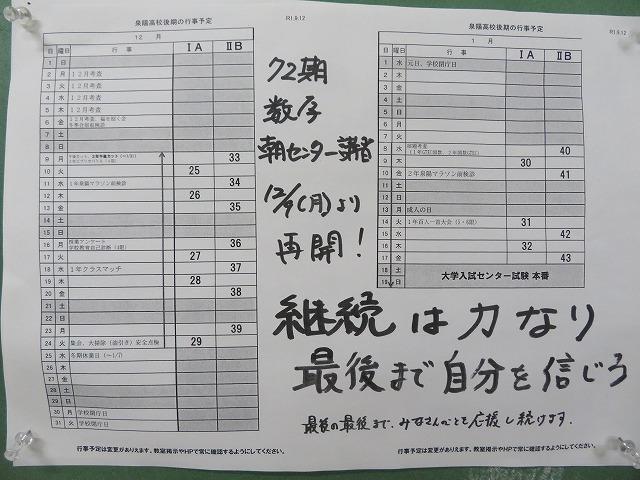 泉陽高校後期の行事予定
R1.9.12
12 月
日 曜日 行 事 ⅠA ⅡB
1 日
2 月 12月考査
3 火 12月考査
4 水 12月考査
5 木 12月考査
6 金
7 土
8 日
9 月 33
10 火 25
11 水 1年泉陽マラソン前検診 34
12 木 26
13 金 35
14 土
15 日
16 月 授業アンケート 36
学校教育自己診断(4限)
17 火 27
18 水 1年クラスマッチ 37
19 木 28
20 金 38
21 土
22 日
23 月 39
24 火 集会、大掃除(油引き)安全点検 29
25 水 冬期休業日(~1/7)
26 木
27 金
28 土
29 日
30 月 学校閉庁日
31 火 学校閉庁日
行事予定は変更がありえます。教室掲示やHPで常に確認するようにしてください。
72期
数学
朝センター講習
12/9(月)より
再開!
泉陽高校後期の行事予定
R1.9.12
1 月
日 曜日 行 事 ⅠA ⅡB
1 水 元日、学校閉庁日
2 木
3 金
4 土
5 日
6 月
7 火
8 水 40
9 木 30
10 金 2年泉陽マラソン前検診 41
11 土
12 日
13 月 成人の日
14 火 1年百人一首大会(5・6限) 31
15 水 42
16 木 32
17 金 43
18 土 大学入試センター試験 本番
19 日
継続は力なり
最後まで自分を信じろ
最後の最後まで、みなさんのことを応援し続けます.
行事予定は変更がありえます。教室掲示やHPで常に確認するようにしてください。